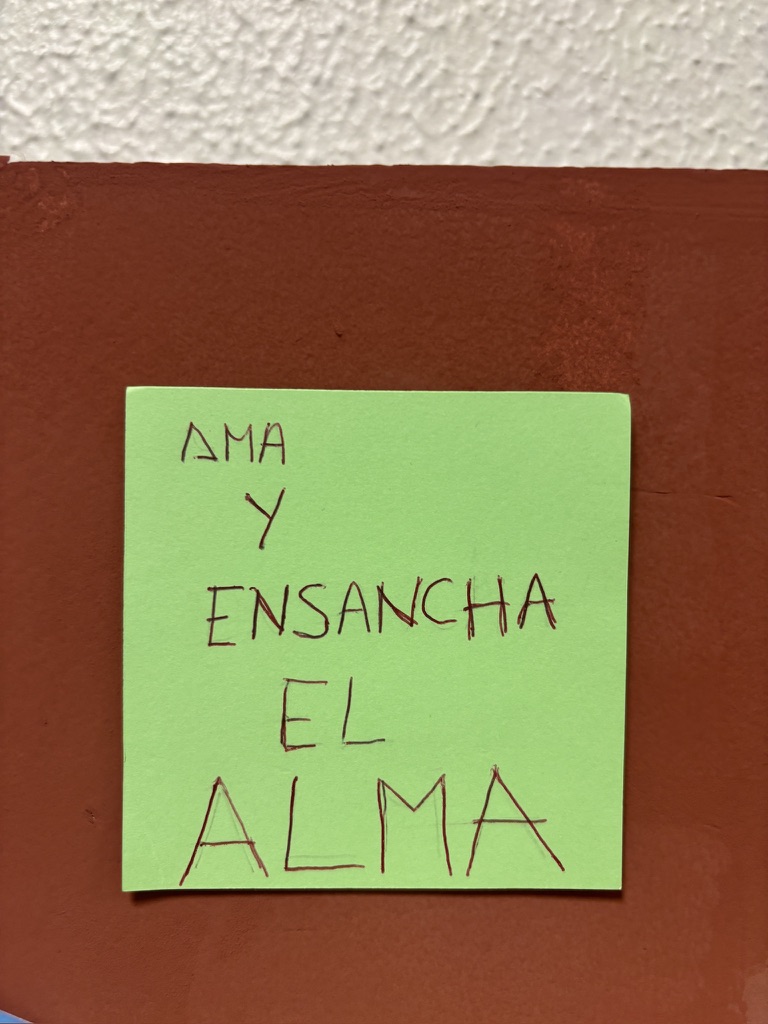 AMA
Y
ENSANCHA
EL
ALMA